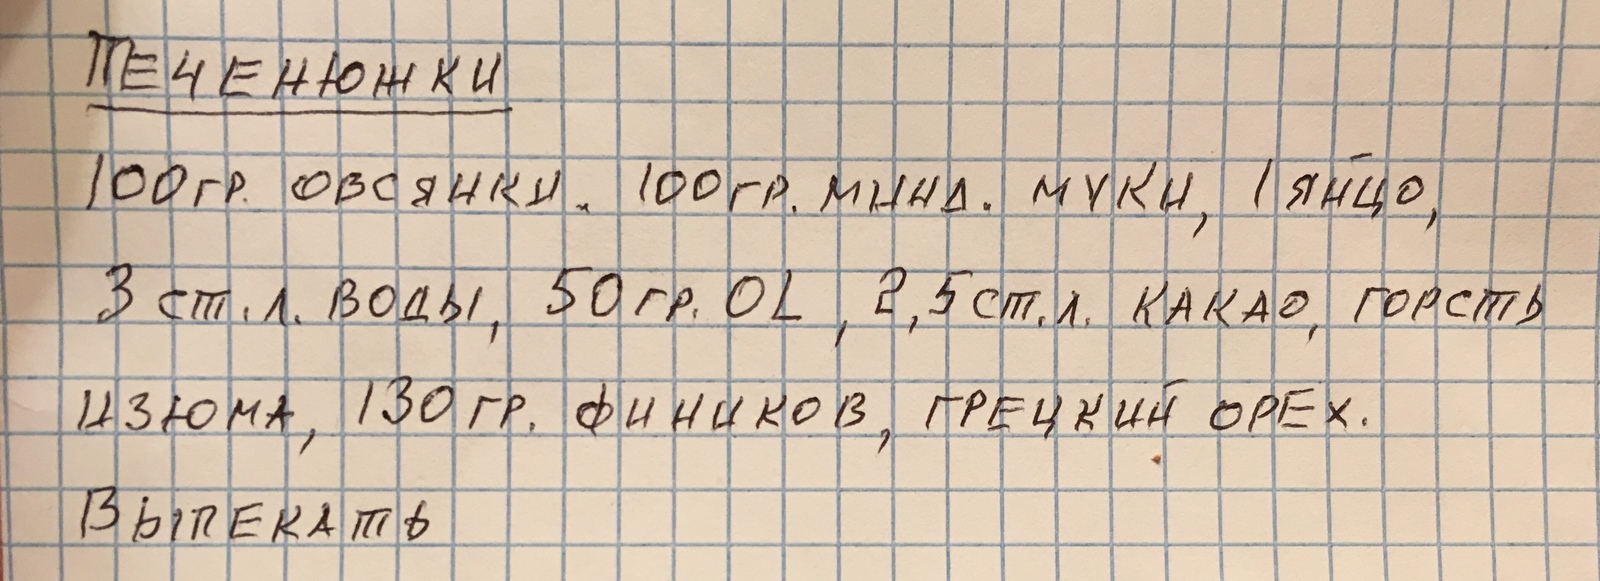 ПЕЧЕНЮЖКИ
100гр. овсянки. 100гр. минд. муки, 1 яйцо,
3 ст.л. воды, 50гр. OL, 2,5ст.л. какао, горсть
изюма, 130гр. фиников, грецкий орех.
Выпекать